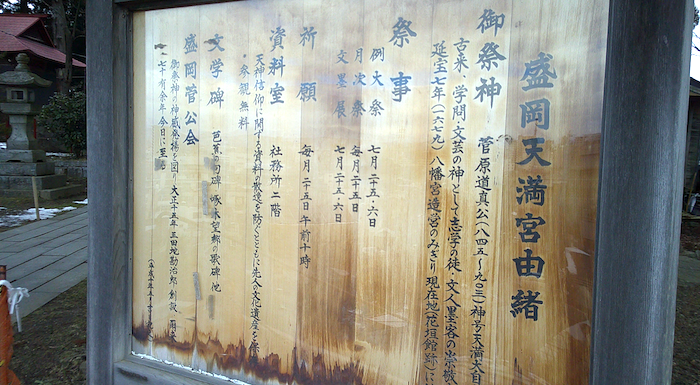 盛岡天満宮由緒
御祭神 菅原道真公(八四五〜九〇三)神号天満大自
古来、学問・文芸の神として志学の徒・文人墨客の崇敬
延宝七年(一六七九)八幡宮造営のみぎり現在地(花垣館跡)に
祭事
例大祭 七月二十五・六日
月次祭 毎月二十五日
文墨展 七月二十五・六日
祈願 毎月二十五日午前十時
資料室 社務所二階
天神信仰に関する資料の散逸を防ぐとともに先人の文化遺産を保
・参観無料
文学碑 芭蕉の句碑 啄木望郷の歌碑 他
盛岡菅公会
御祭神の神威発揚を図り大正十五年三田地勘治郎創設 爾来
七十有余年今日に至る